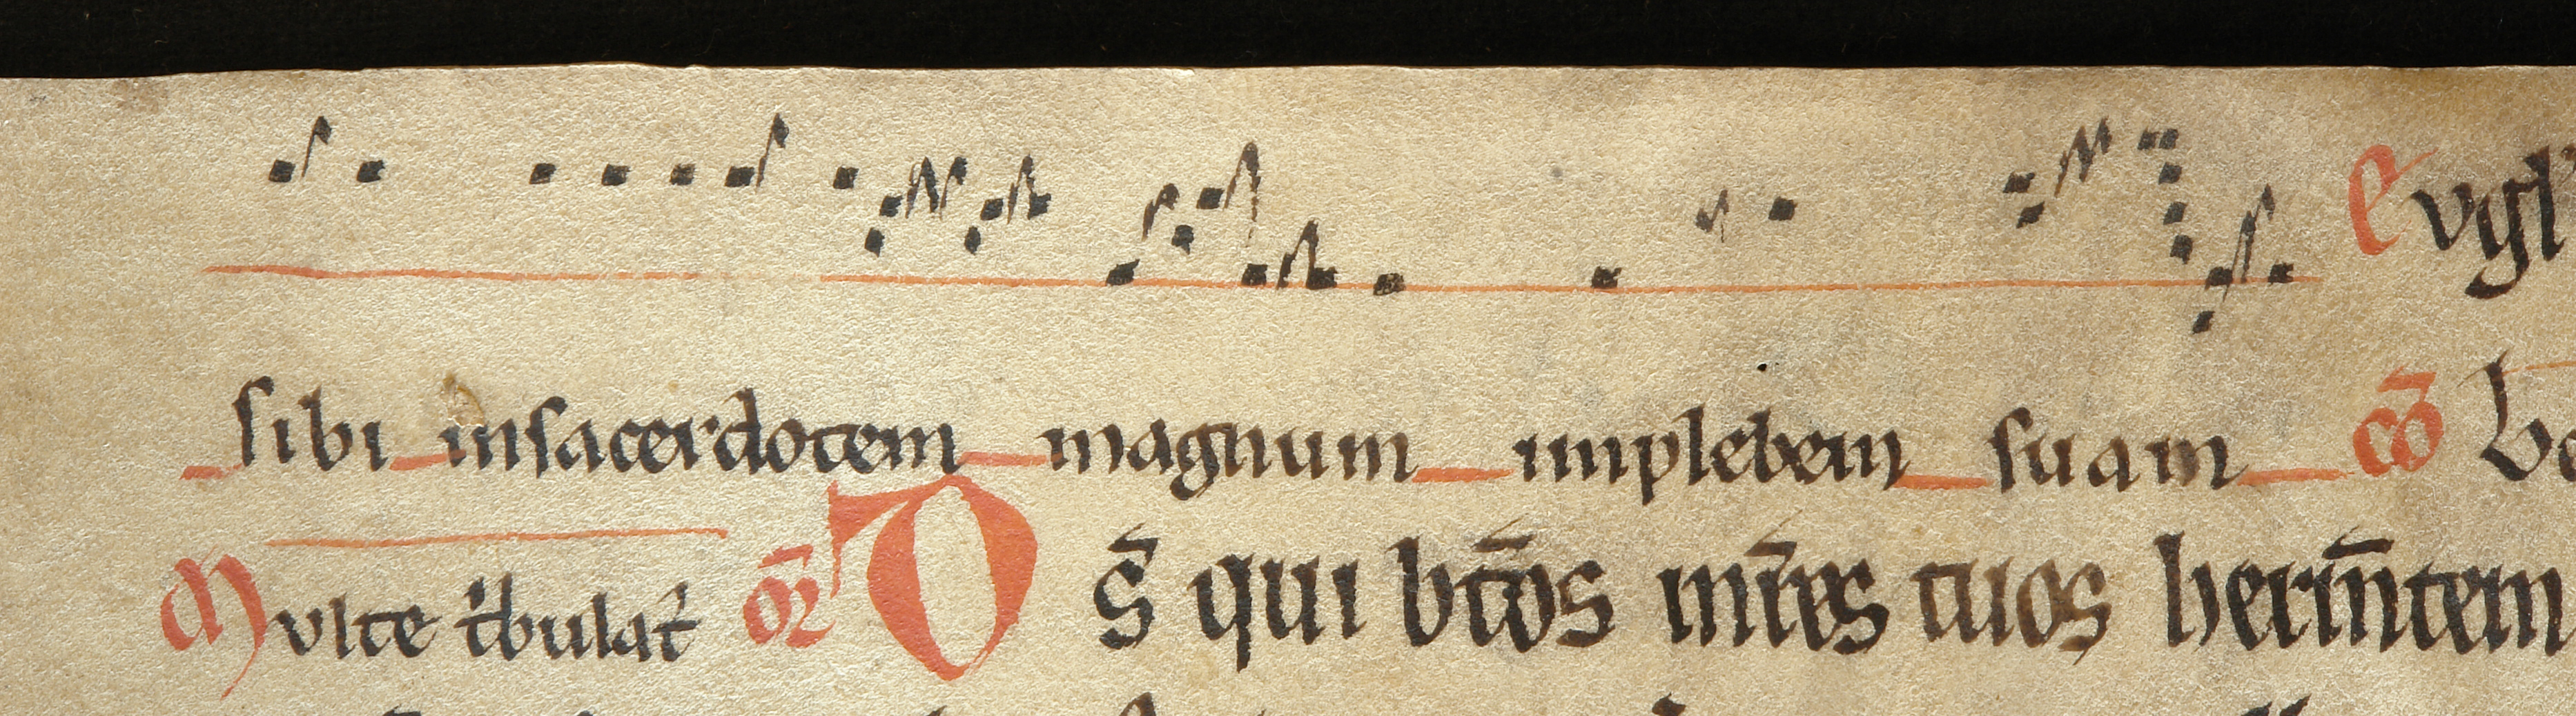 Evgl
sibi insacerdotem magnum inplebem suam cō
Multe t̄bulat̄ or̄ D s̄ qui bt̄os mr̄es tuos herm̄tem